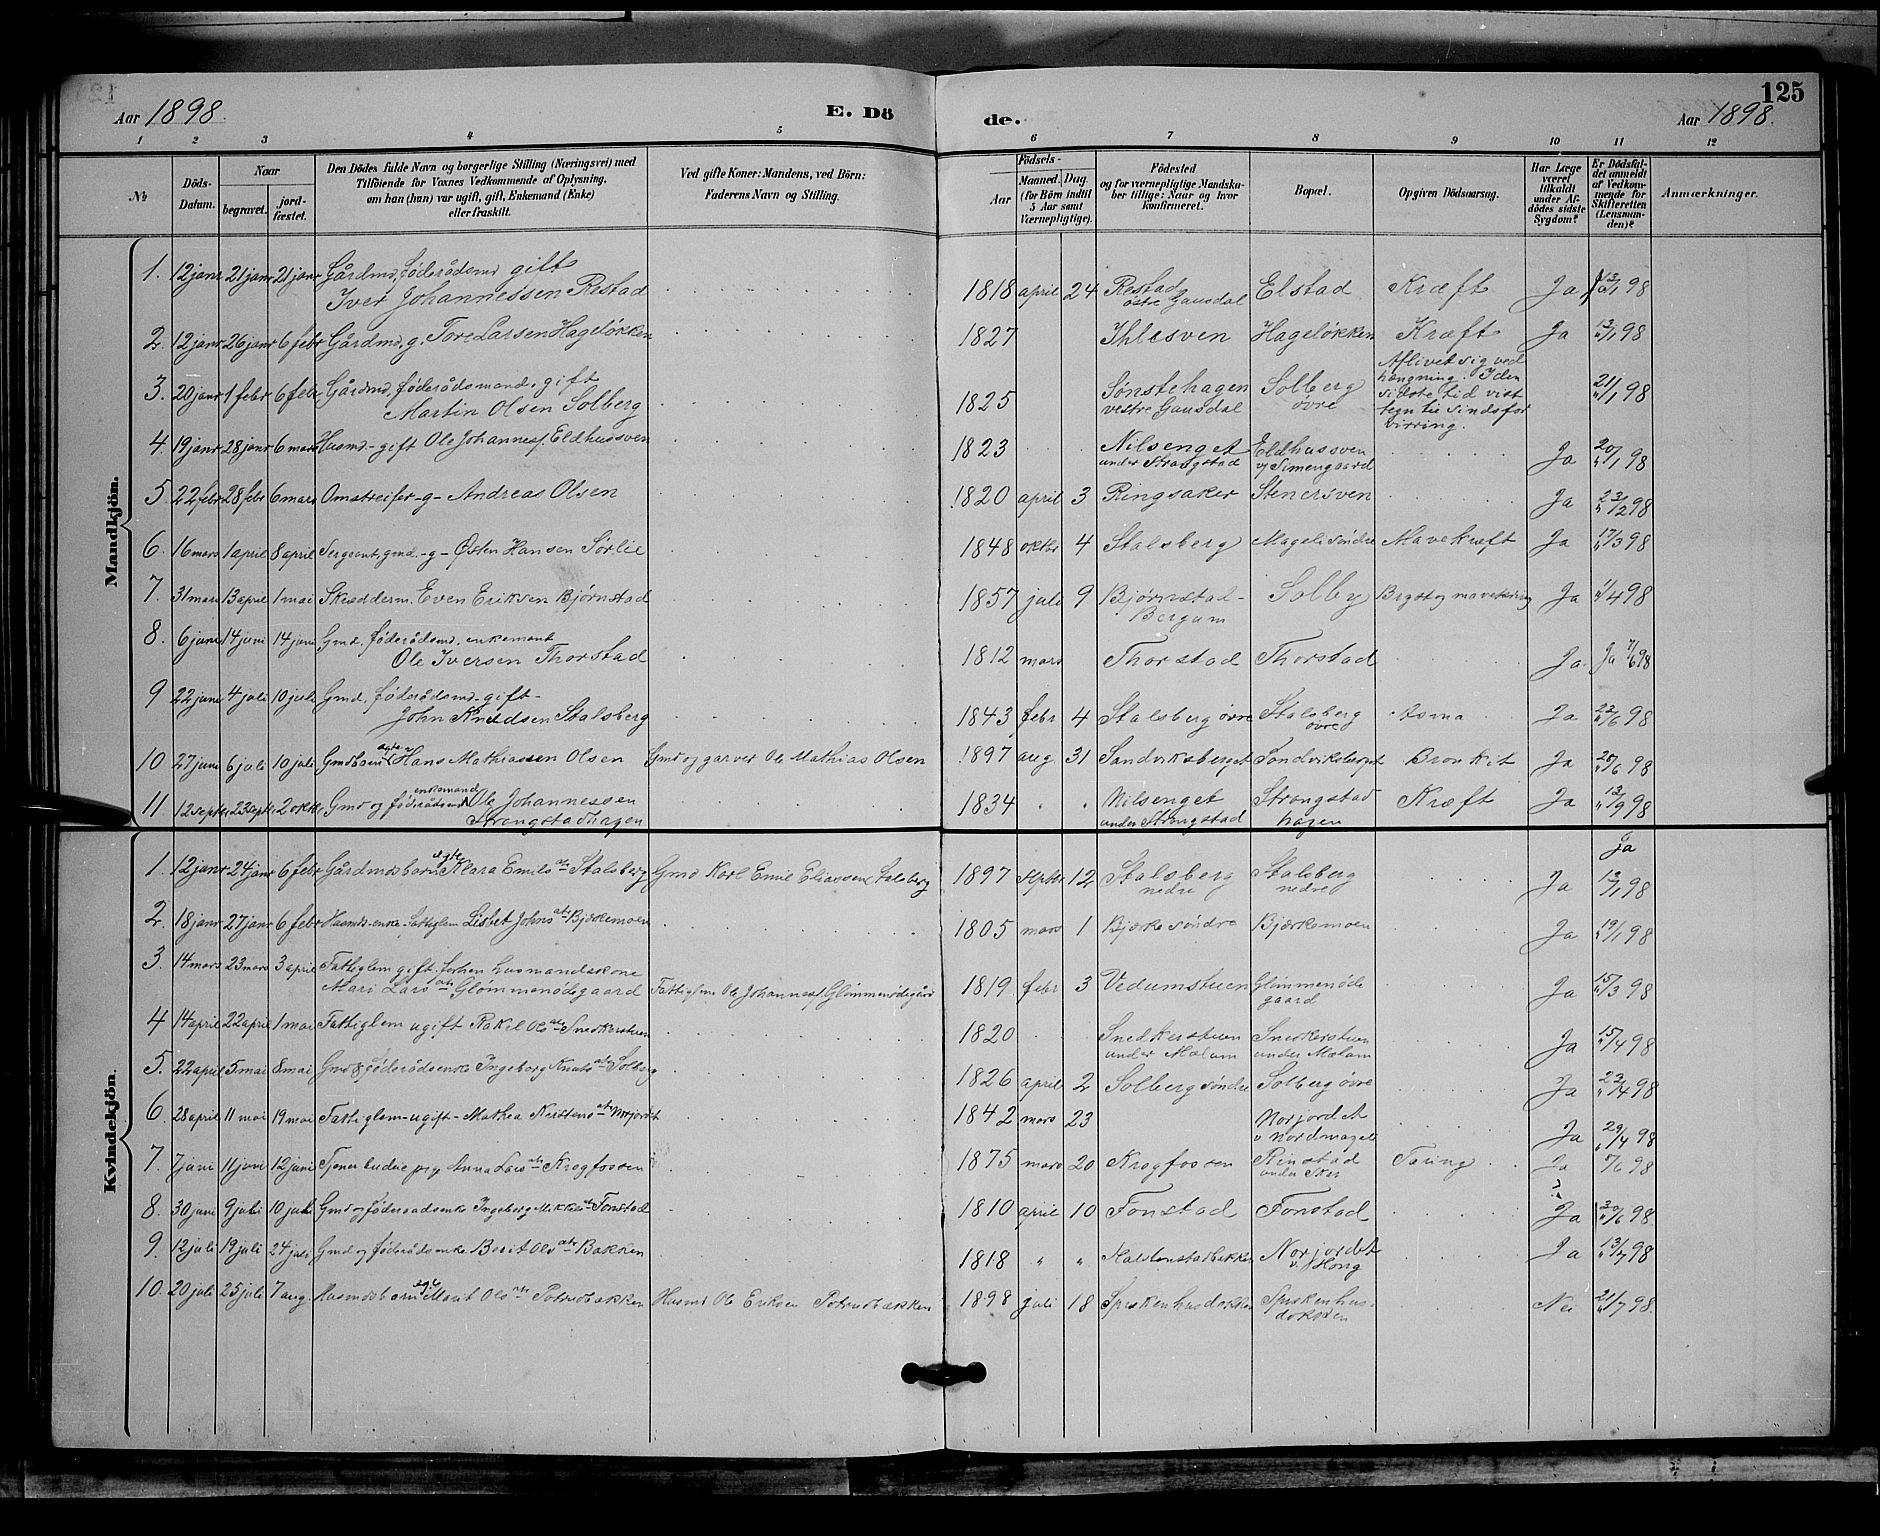 125
Aar 1898.
E. Dö
de.
Aar 1898.
1 2 3 4 5 6 7 8 9 10 11 12
№
Döds-Datum.
Naar
begravet.
jord-fæstet.
Den Dödes fulde Navn og borgerlige Stilling (Næringsvei) med
Tilföiende for Voxnes Vedkommende af Oplysning,
om han (hun) var ugift, gift, Enkemand (Enke)
eller fraskilt.
Ved gifte Koner: Mandens, ved Börn:
Faderens Navn og Stilling.
Födsels-
Aar
Maaned. Dag.
(for Börn indtil
5 Aar samt
Værnepligtige).
Födested
og for værnepligtige Mandska-
ber tillige: Naar og hvor
konfirmeret.
Bopæl.
Opgiven Dödsaarsag.
Har Læge
været
tilkaldt
under Af-
dödes sidste
Sygdom?
Er Dödsfal-
det anmeldt
af Vedkom-
mende for
Skifteretten
(Lensman-
den)?
Anmærkninger.
Mandkjön.
1. 12 janr 21 janr 21 janr Gårdmd, föderådsmd gift
Iver Johannessen Restad 1818 april 24 Restad östre Gausdal Elstad Kræft Ja 13/1 98
2. 12 janr 26 janr 6 febr Gårdmd, g. Tore Larsen Hagelökken 1827 Ihlesven Hagelökken Kræft Ja 13/1 98
3. 20 janr 1 febr 6 febr Gårdmd, föderådsmand, gift
Martin Olsen Solberg 1825 Sønstehagen vestre Gausdal Solberg övre Aflivet sig ved hængning. I den sidste tid vist tegn til sindsforvirring. 21/1 98
4. 19 janr 28 janr 6 mars Husmd - gift Ole Johannes. Eldhussven 1823 Nilsenget under Strangstad Eldhussven v/ Simengaard Ja 20/1 98
5. 22 febr 28 febr 6 mars Omstreifer - g - Andreas Olsen 1820 april 3 Ringsaker Stenersven Ja 23/2 98
6. 16 mars 1 april 8 april Sergeant, gmd. - g - Østen Hansen Sörlie 1848 oktbr 4 Stalsberg Mageli søndre Mavekræft Ja 17/3 98
7. 31 mars 13 april 1 mai Skrædderm. Even Eriksen Bjørnstad 1857 juli 9 Bjørnstad - Bergum Solby Bryst og mavetæring Ja 1/4 98
8. 6 juni 14 juni 14 juni Gmd, föderådsmd, enkemand
Ole Iversen Thorstad 1812 mars Thorstad Thorstad Ja Ja 7/6 98
9 22 juni 4 juli 10 juli Gmd, föderådsmd, gift -
John Knudsen Stalsberg 1843 febr 4 Stalsberg övre Stalsberg övre Asma Ja 22/6 98
10 27 juni 6 juli 10 juli Gmdbarn ægte Hans Mathiassen Olsen Gmd og garver Ole Mathias Olsen 1897 aug. 31 Sandviksberget Sandviksberget Bronkit Ja 28/6 98
11 12 septbr 23 septbr 2 oktbr Gmd og föderådsmd enkemand Ole Johannessen
Strangstadhagen 1834 " " Nilsenget under Strangstad Strangstadhagen Kræft Ja 13/9 98
Kvindekjön.
1. 12 janr 24 janr 6 febr Gårdmdsbarn ægte Klara Emils dtr Stalsberg Gmd Karl Emil Eliassen Stalsberg 1897 septbr 12 Stalsberg nedre Stalsberg nedre Ja Ja 13/1 98
2. 18 janr 27 janr 6 febr Husmds-enke. Fattiglem Lisbet Johns dtr Bjerkemoen 1805 mars 1 Bjerke søndre Bjærkemoen Ja 19/1 98
3. 14 mars 23 mars 3 april Fattiglem gift. forhen husmandskone
Mari Lars dtr Glömmenödegaard Fattiglem Ole Johannes. Glömmenödegård 1819 febr 3 Vedumstuen Glömmenödegaard Ja 15/3 98
4 14 april 22 april 1 mai Fattiglem ugift Rakel Ols dtr Snedkerstuen 1820 Snedkerstuen under Mælum Snedkerstuen under Mælum Ja 15/4 98
5. 22 april 5 mai 8 mai Gmd & föderådsenke Ingeborg Knuts dtr Solberg 1826 april 2 Solberg søndre Solberg övre Ja 23/4 98
6. 28 april 11 mai 19 mai Fattiglem - ugift - Mathea dtr Norjordet 1842 mars 23 Norjordet v Nordmageli Ja 29/4 98
7. 7 juni 11 juni 12 juni Tjener Anna Lars dtr Krogfossen 1875 mars 20 Krogfossen Rinstad under Skei Tæring Ja 7/6 98
8. 30 juni 9 juli 10 juli Gmd og föderaadsenke Ingeborg Mikkels dtr Fonstad 1810 april 10 Fonstad Fonstad Ja 30/6 98
9. 12 juli 19 juli 24 juli Gmd og föderådsenke Berit Ols dtr Bakken 1818 " " Norjordet v. Hong Ja 13/7 98
10. 20 juli 25 juli 7 aug. Husmdsbarn ægte Marit Ols dtr Potrudbakken Husmd Ole Eriksen Potrudbakken 1898 juli 18 Nei 21/7 98.